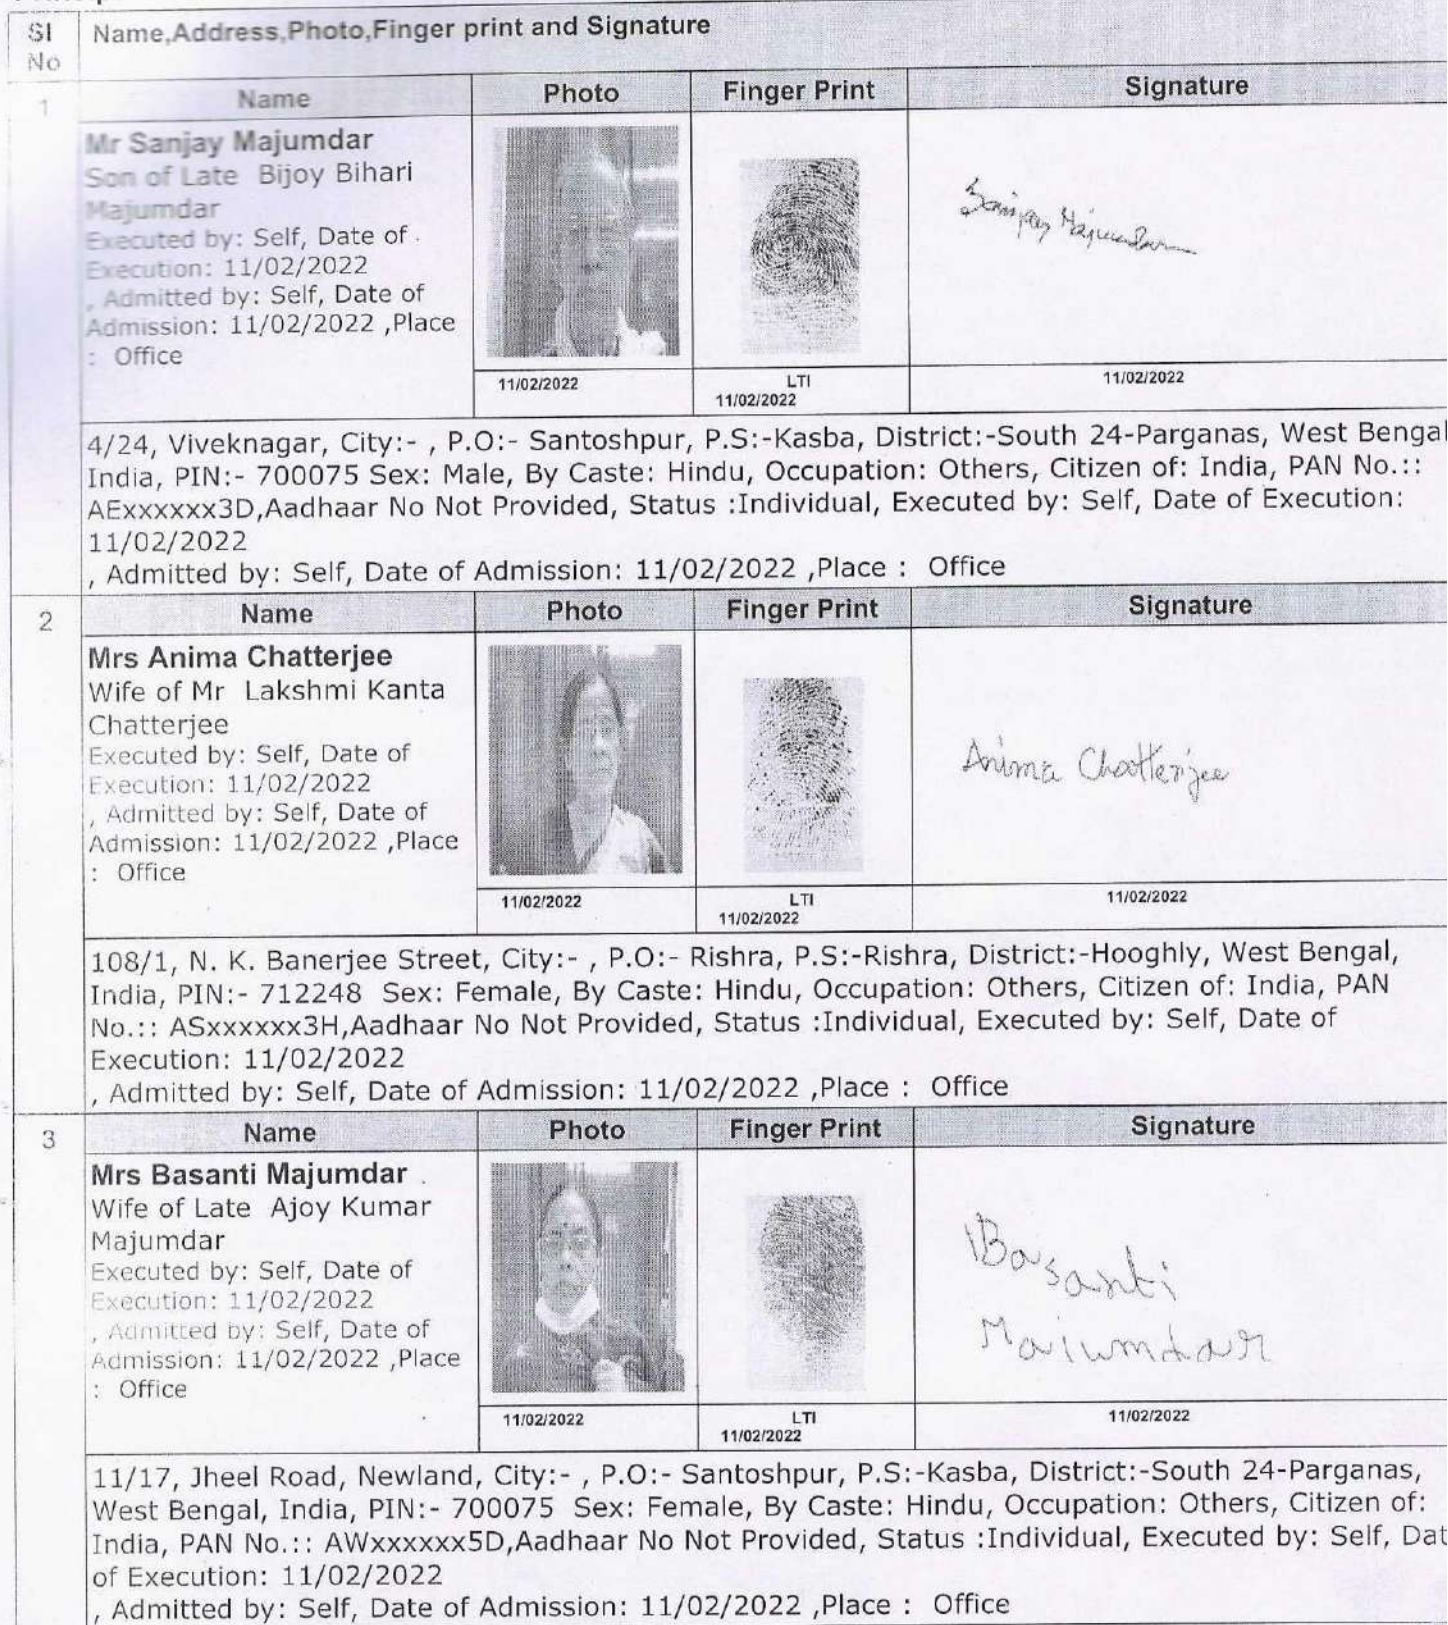 Sl No Name,Address,Photo,Finger print and Signature
1 Name Photo Finger Print Signature
Mr Sanjay Majumdar
Son of Late Bijoy Bihari
Majumdar
Executed by: Self, Date of
Execution: 11/02/2022
, Admitted by: Self, Date of
Admission: 11/02/2022 ,Place
: Office
Sanjay Majumdar
11/02/2022 LTI 11/02/2022
11/02/2022
4/24, Viveknagar, City:- , P.O:- Santoshpur, P.S:-Kasba, District:-South 24-Parganas, West Bengal
India, PIN:- 700075 Sex: Male, By Caste: Hindu, Occupation: Others, Citizen of: India, PAN No.::
AExxxxxx3D,Aadhaar No Not Provided, Status :Individual, Executed by: Self, Date of Execution:
11/02/2022
, Admitted by: Self, Date of Admission: 11/02/2022 ,Place : Office
2 Name Photo Finger Print Signature
Mrs Anima Chatterjee
Wife of Mr Lakshmi Kanta
Chatterjee
Executed by: Self, Date of
Execution: 11/02/2022
, Admitted by: Self, Date of
Admission: 11/02/2022 ,Place
: Office
Anima Chatterjee
11/02/2022 LTI 11/02/2022
11/02/2022
108/1, N. K. Banerjee Street, City:- , P.O:- Rishra, P.S:-Rishra, District:-Hooghly, West Bengal,
India, PIN:- 712248 Sex: Female, By Caste: Hindu, Occupation: Others, Citizen of: India, PAN
No.:: ASxxxxxx3H,Aadhaar No Not Provided, Status :Individual, Executed by: Self, Date of
Execution: 11/02/2022
, Admitted by: Self, Date of Admission: 11/02/2022 ,Place : Office
3 Name Photo Finger Print Signature
Mrs Basanti Majumdar
Wife of Late Ajoy Kumar
Majumdar
Executed by: Self, Date of
Execution: 11/02/2022
, Admitted by: Self, Date of
Admission: 11/02/2022 ,Place
: Office
Basanti
Majumdar
11/02/2022 LTI 11/02/2022
11/02/2022
11/17, Jheel Road, Newland, City:- , P.O:- Santoshpur, P.S:-Kasba, District:-South 24-Parganas,
West Bengal, India, PIN:- 700075 Sex: Female, By Caste: Hindu, Occupation: Others, Citizen of:
India, PAN No.:: AWxxxxxx5D,Aadhaar No Not Provided, Status :Individual, Executed by: Self, Dat
of Execution: 11/02/2022
, Admitted by: Self, Date of Admission: 11/02/2022 ,Place : Office